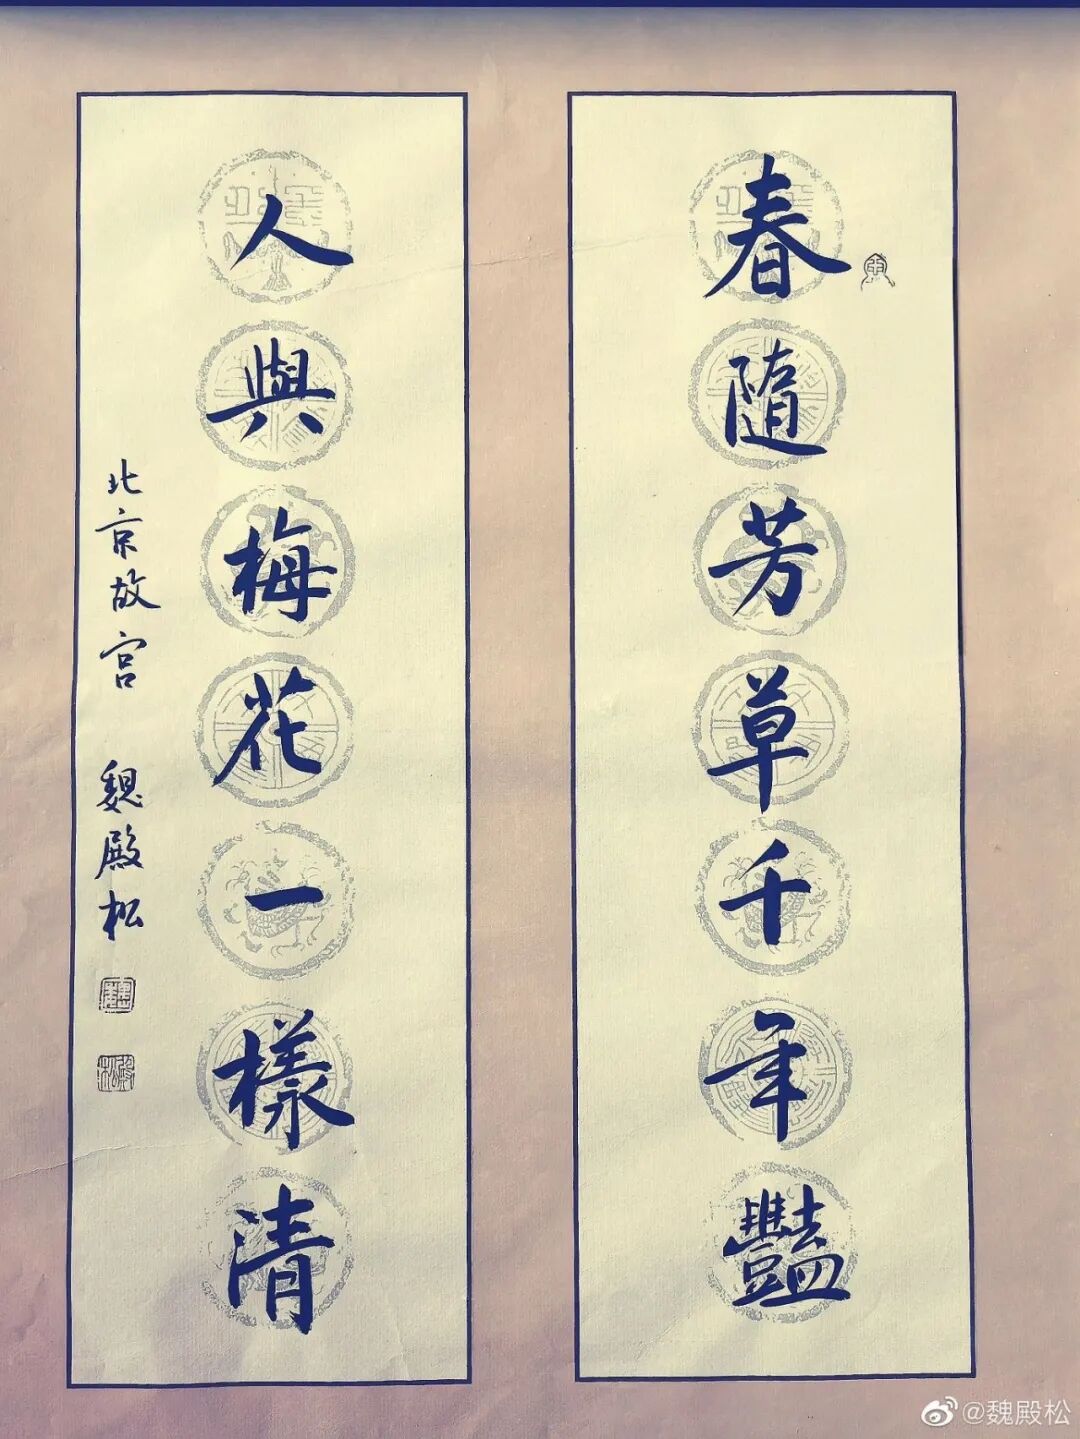 春隨芳草千年豔
人與梅花一樣清
北京故宮 魏殿松
@魏殿松